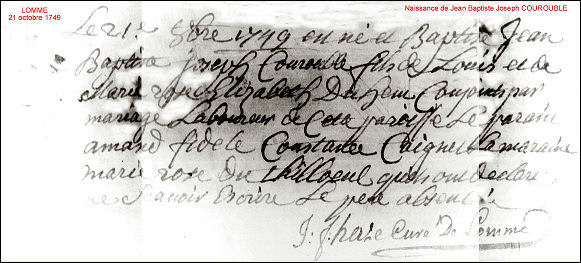 LOMME
21 octobre 1749
Naissance de Jean Baptiste Joseph COUROUBLE
Le 21e 8bre 1749 est né et Baptisé Jean
Baptiste Joseph Courouble fils de Louis et de
Marie rose Elizabeth Du hem Conjoints par
mariage Laboureur de Cette paroisse Le parain
amand fidele Constance La maraine
marie rose du thilloeul qui ont declaré
ne Scavoir Ecrire Le pere absent
Curé De Lomme